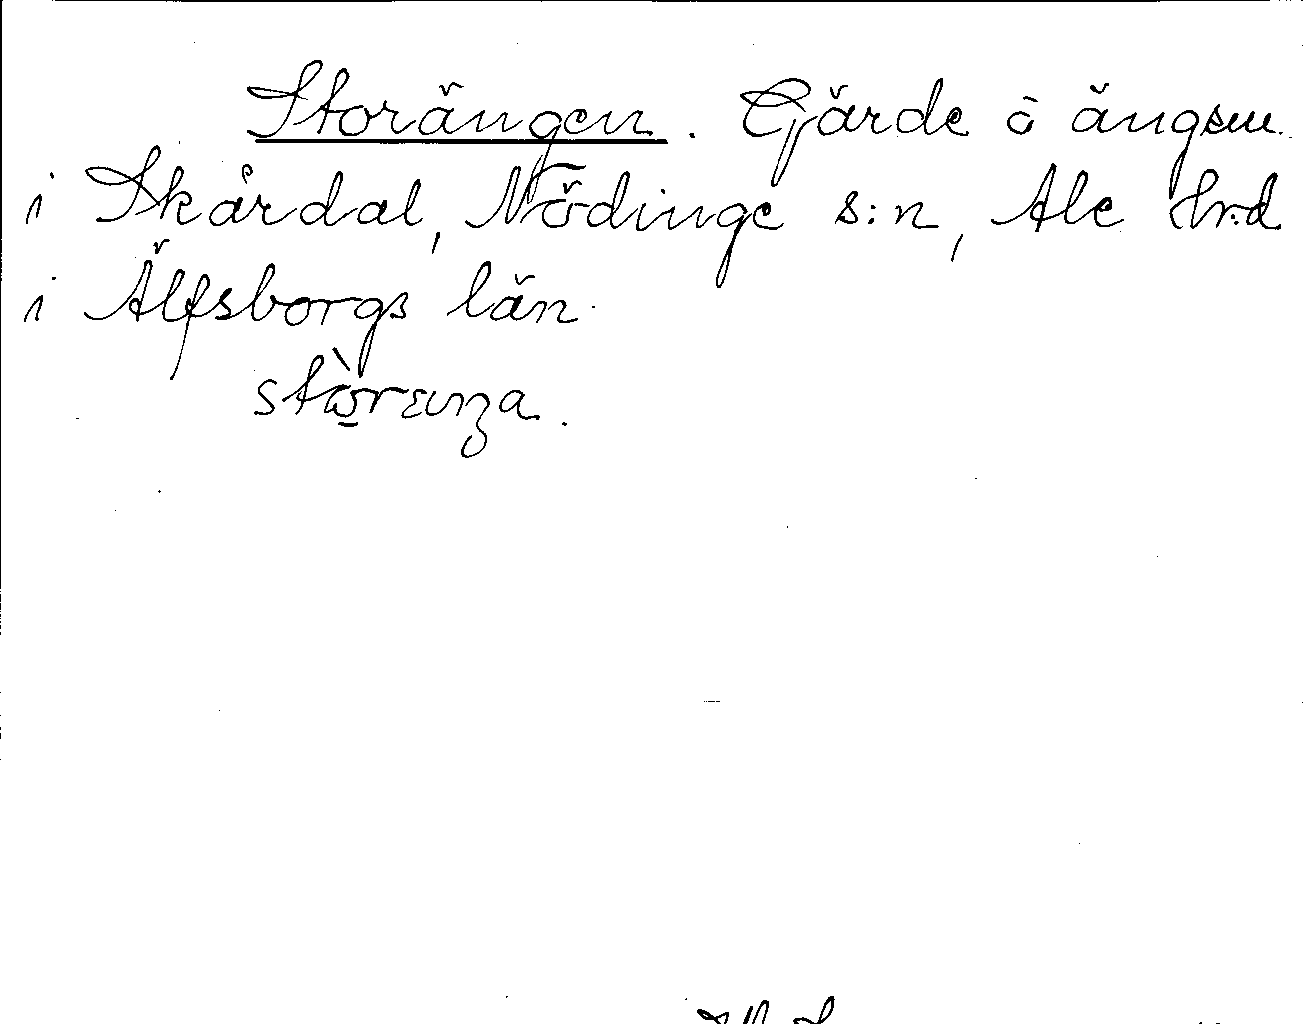 Storängen. Gärde o ängsm.
i Skårdal, Nödinge s:n, Ale Hrd
i Älfsborgs län